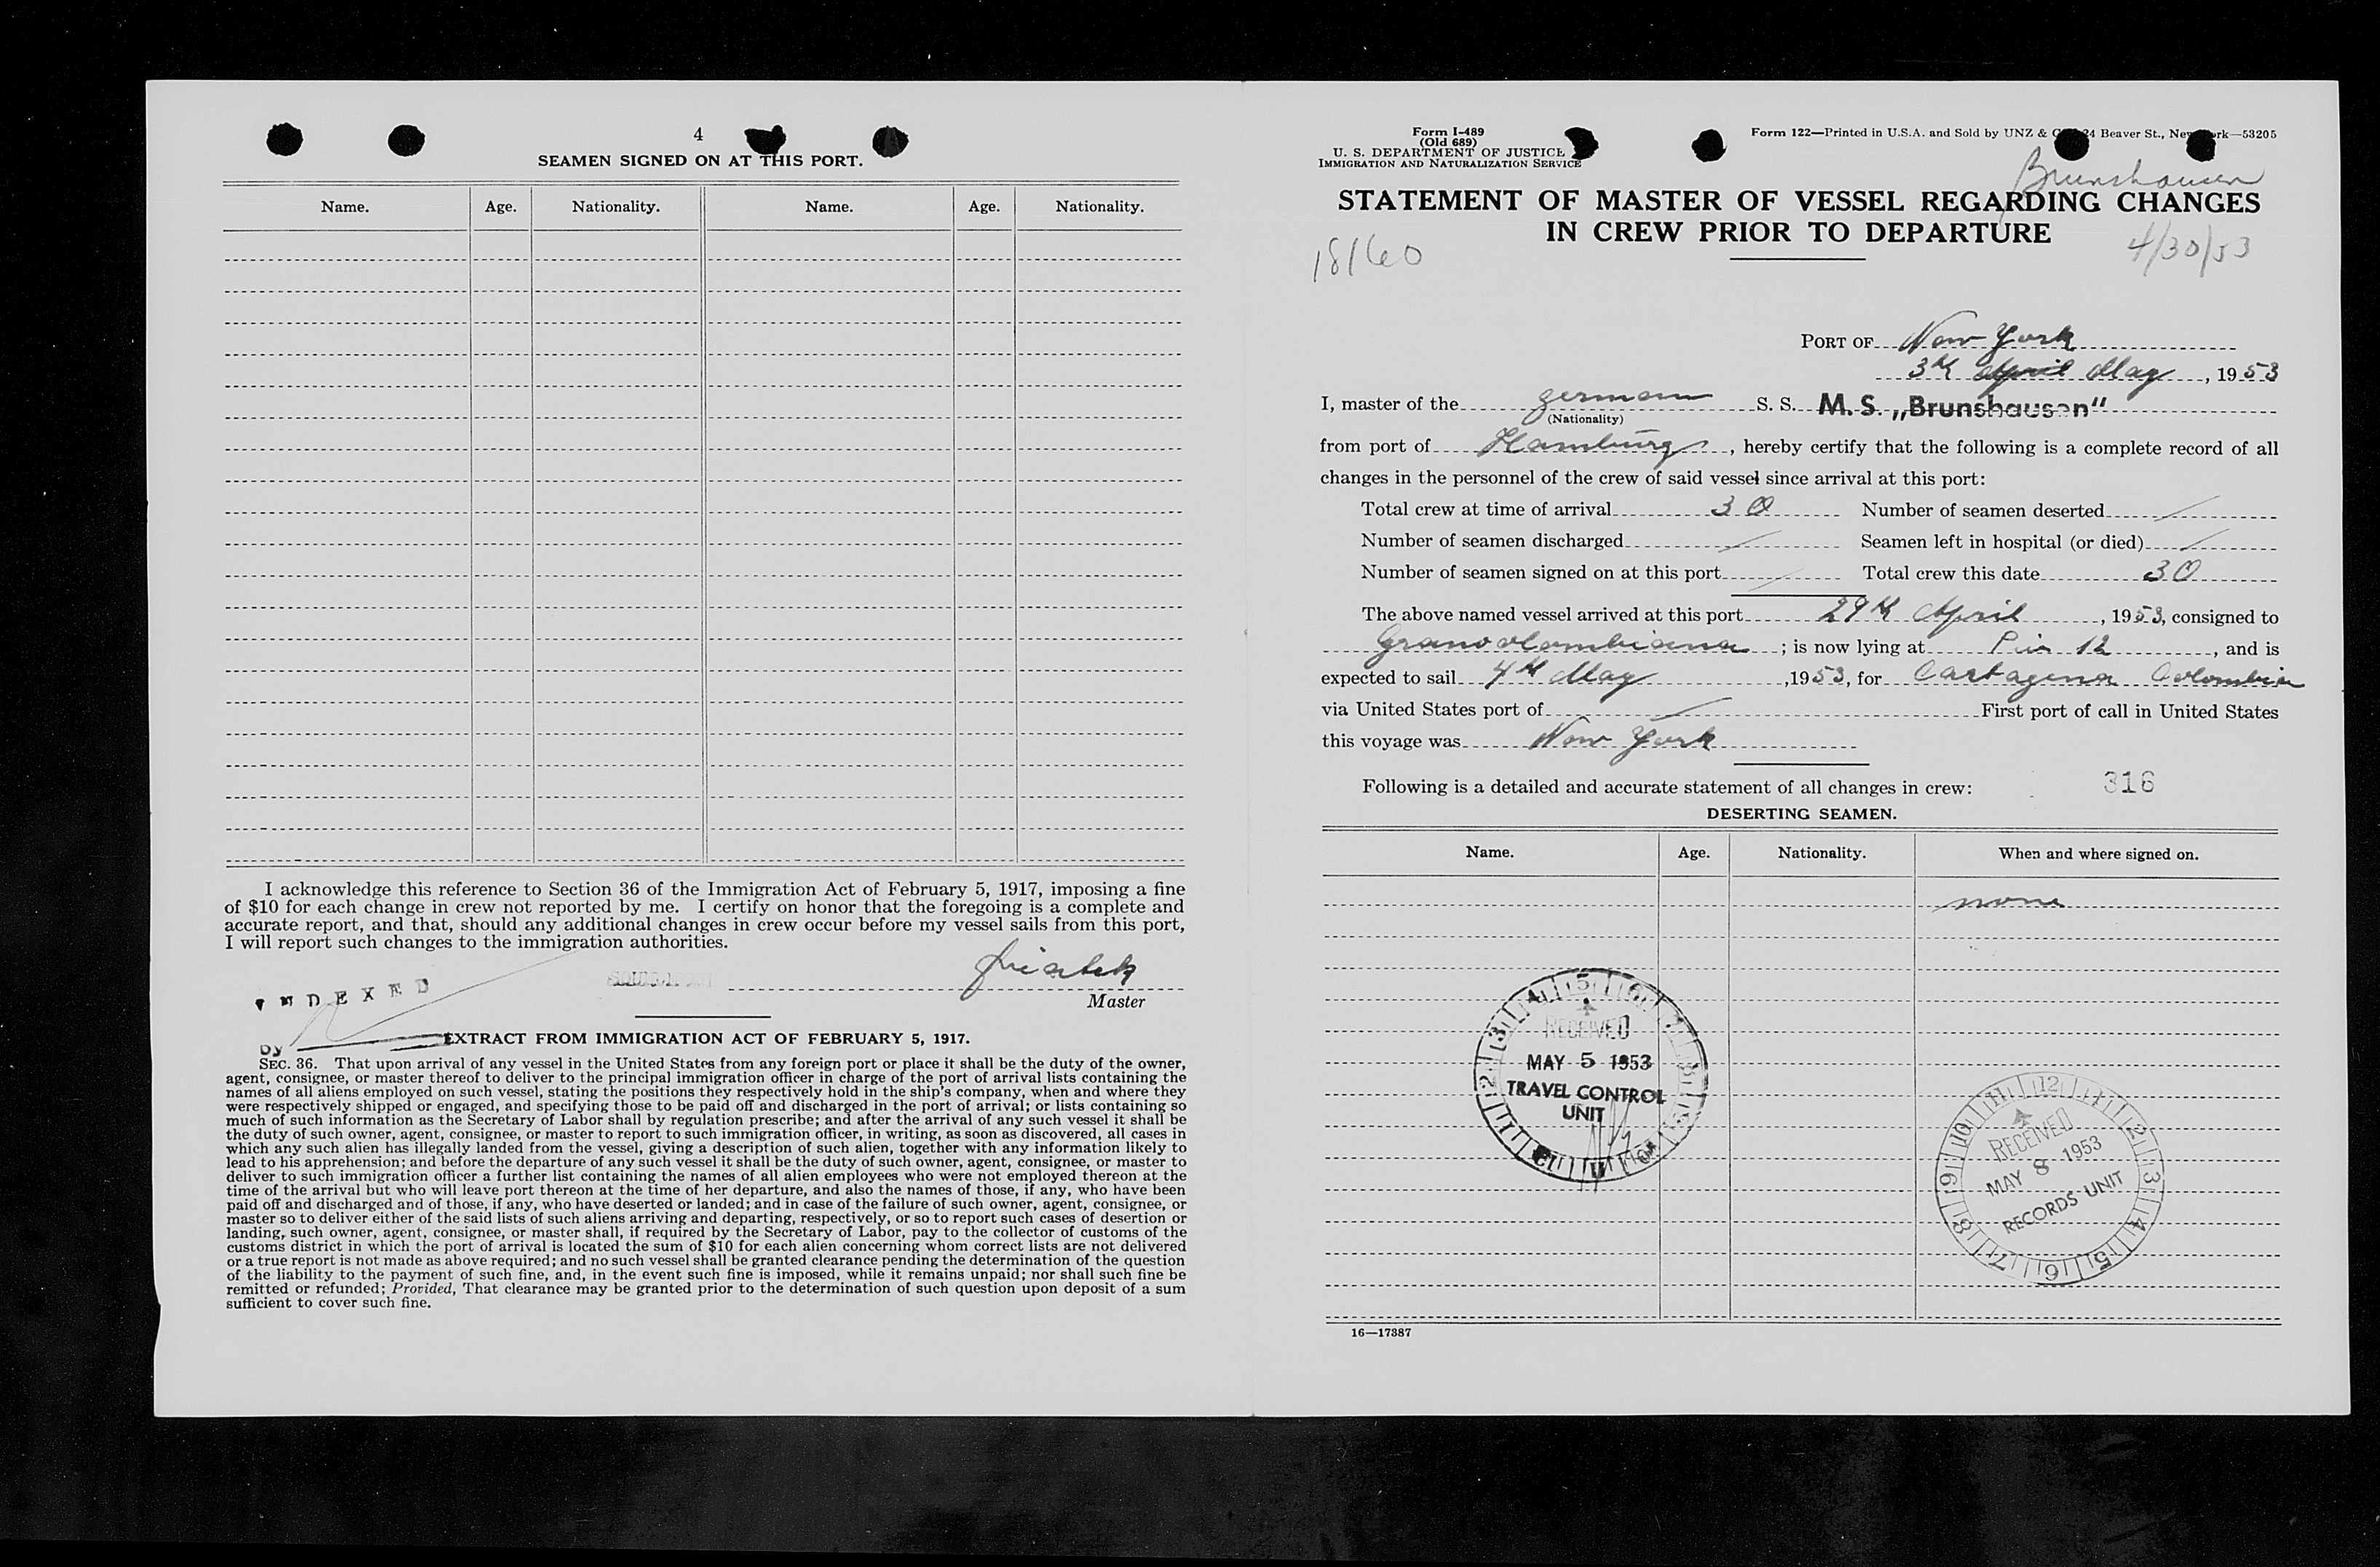 4
SEAMEN SIGNED ON AT THIS PORT.
Name. Age. Nationality. Name. Age. Nationality.
I acknowledge this reference to Section 36 of the Immigration Act of February 5, 1917, imposing a fine
of $10 for each change in crew not reported by me. I certify on honor that the foregoing is a complete and
accurate report, and that, should any additional changes in crew occur before my vessel sails from this port,
I will report such changes to the immigration authorities.
INDEXED
Master
by
EXTRACT FROM IMMIGRATION ACT OF FEBRUARY 5, 1917.
SEC. 36. That upon arrival of any vessel in the United States from any foreign port or place it shall be the duty of the owner,
agent, consignee, or master thereof to deliver to the principal immigration officer in charge of the port of arrival lists containing the
names of all aliens employed on such vessel, stating the positions they respectively hold in the ship's company, when and where they
were respectively shipped or engaged, and specifying those to be paid off and discharged in the port of arrival; or lists containing so
much of such information as the Secretary of Labor shall by regulation prescribe; and after the arrival of any such vessel it shall be
the duty of such owner, agent, consignee, or master to report to such immigration officer, in writing, as soon as discovered, all cases in
which any such alien has illegally landed from the vessel, giving a description of such alien, together with any information likely to
lead to his apprehension; and before the departure of any such vessel it shall be the duty of such owner, agent, consignee, or master to
deliver to such immigration officer a further list containing the names of all alien employees who were not employed thereon at the
time of the arrival but who will leave port thereon at the time of her departure, and also the names of those, if any, who have been
paid off and discharged and of those, if any, who have deserted or landed; and in case of the failure of such owner, agent, consignee, or
master so to deliver either of the said lists of such aliens arriving and departing, respectively, or so to report such cases of desertion or
landing, such owner, agent, consignee, or master shall, if required by the Secretary of Labor, pay to the collector of customs of the
customs district in which the port of arrival is located the sum of $10 for each alien concerning whom correct lists are not delivered
or a true report is not made as above required; and no such vessel shall be granted clearance pending the determination of the question
of the liability to the payment of such fine, and, in the event such fine is imposed, while it remains unpaid; nor shall such fine be
remitted or refunded; Provided, That clearance may be granted prior to the determination of such question upon deposit of a sum
sufficient to cover such fine.
Form I-489
(Old 689)
U. S. DEPARTMENT OF JUSTICE
IMMIGRATION AND NATURALIZATION SERVICE
Form 122—Printed in U.S.A. and Sold by UNZ & 24 Beaver St., New York—53205
Brunshausen
STATEMENT OF MASTER OF VESSEL REGARDING CHANGES
IN CREW PRIOR TO DEPARTURE
18160
4/30/53
PORT OF New York
3th April May, 1953
I, master of the german S. S. M.S. „Brunshausen“
(Nationality)
from port of Hamburg, hereby certify that the following is a complete record of all
changes in the personnel of the crew of said vessel since arrival at this port:
Total crew at time of arrival 30 Number of seamen deserted /
Number of seamen discharged / Seamen left in hospital (or died) /
Number of seamen signed on at this port / Total crew this date 30
The above named vessel arrived at this port 29th April, 1953, consigned to
Grancolombiana; is now lying at Pier 12, and is
expected to sail 4th May, 1953, for Cartagena Colombia
via United States port of / First port of call in United States
this voyage was New York
Following is a detailed and accurate statement of all changes in crew:
316
DESERTING SEAMEN.
Name. Age. Nationality. When and where signed on.
none
RECEIVED
MAY 5 1953
TRAVEL CONTROL
UNIT
RECEIVED
MAY 8 1953
RECORDS UNIT
16—17387